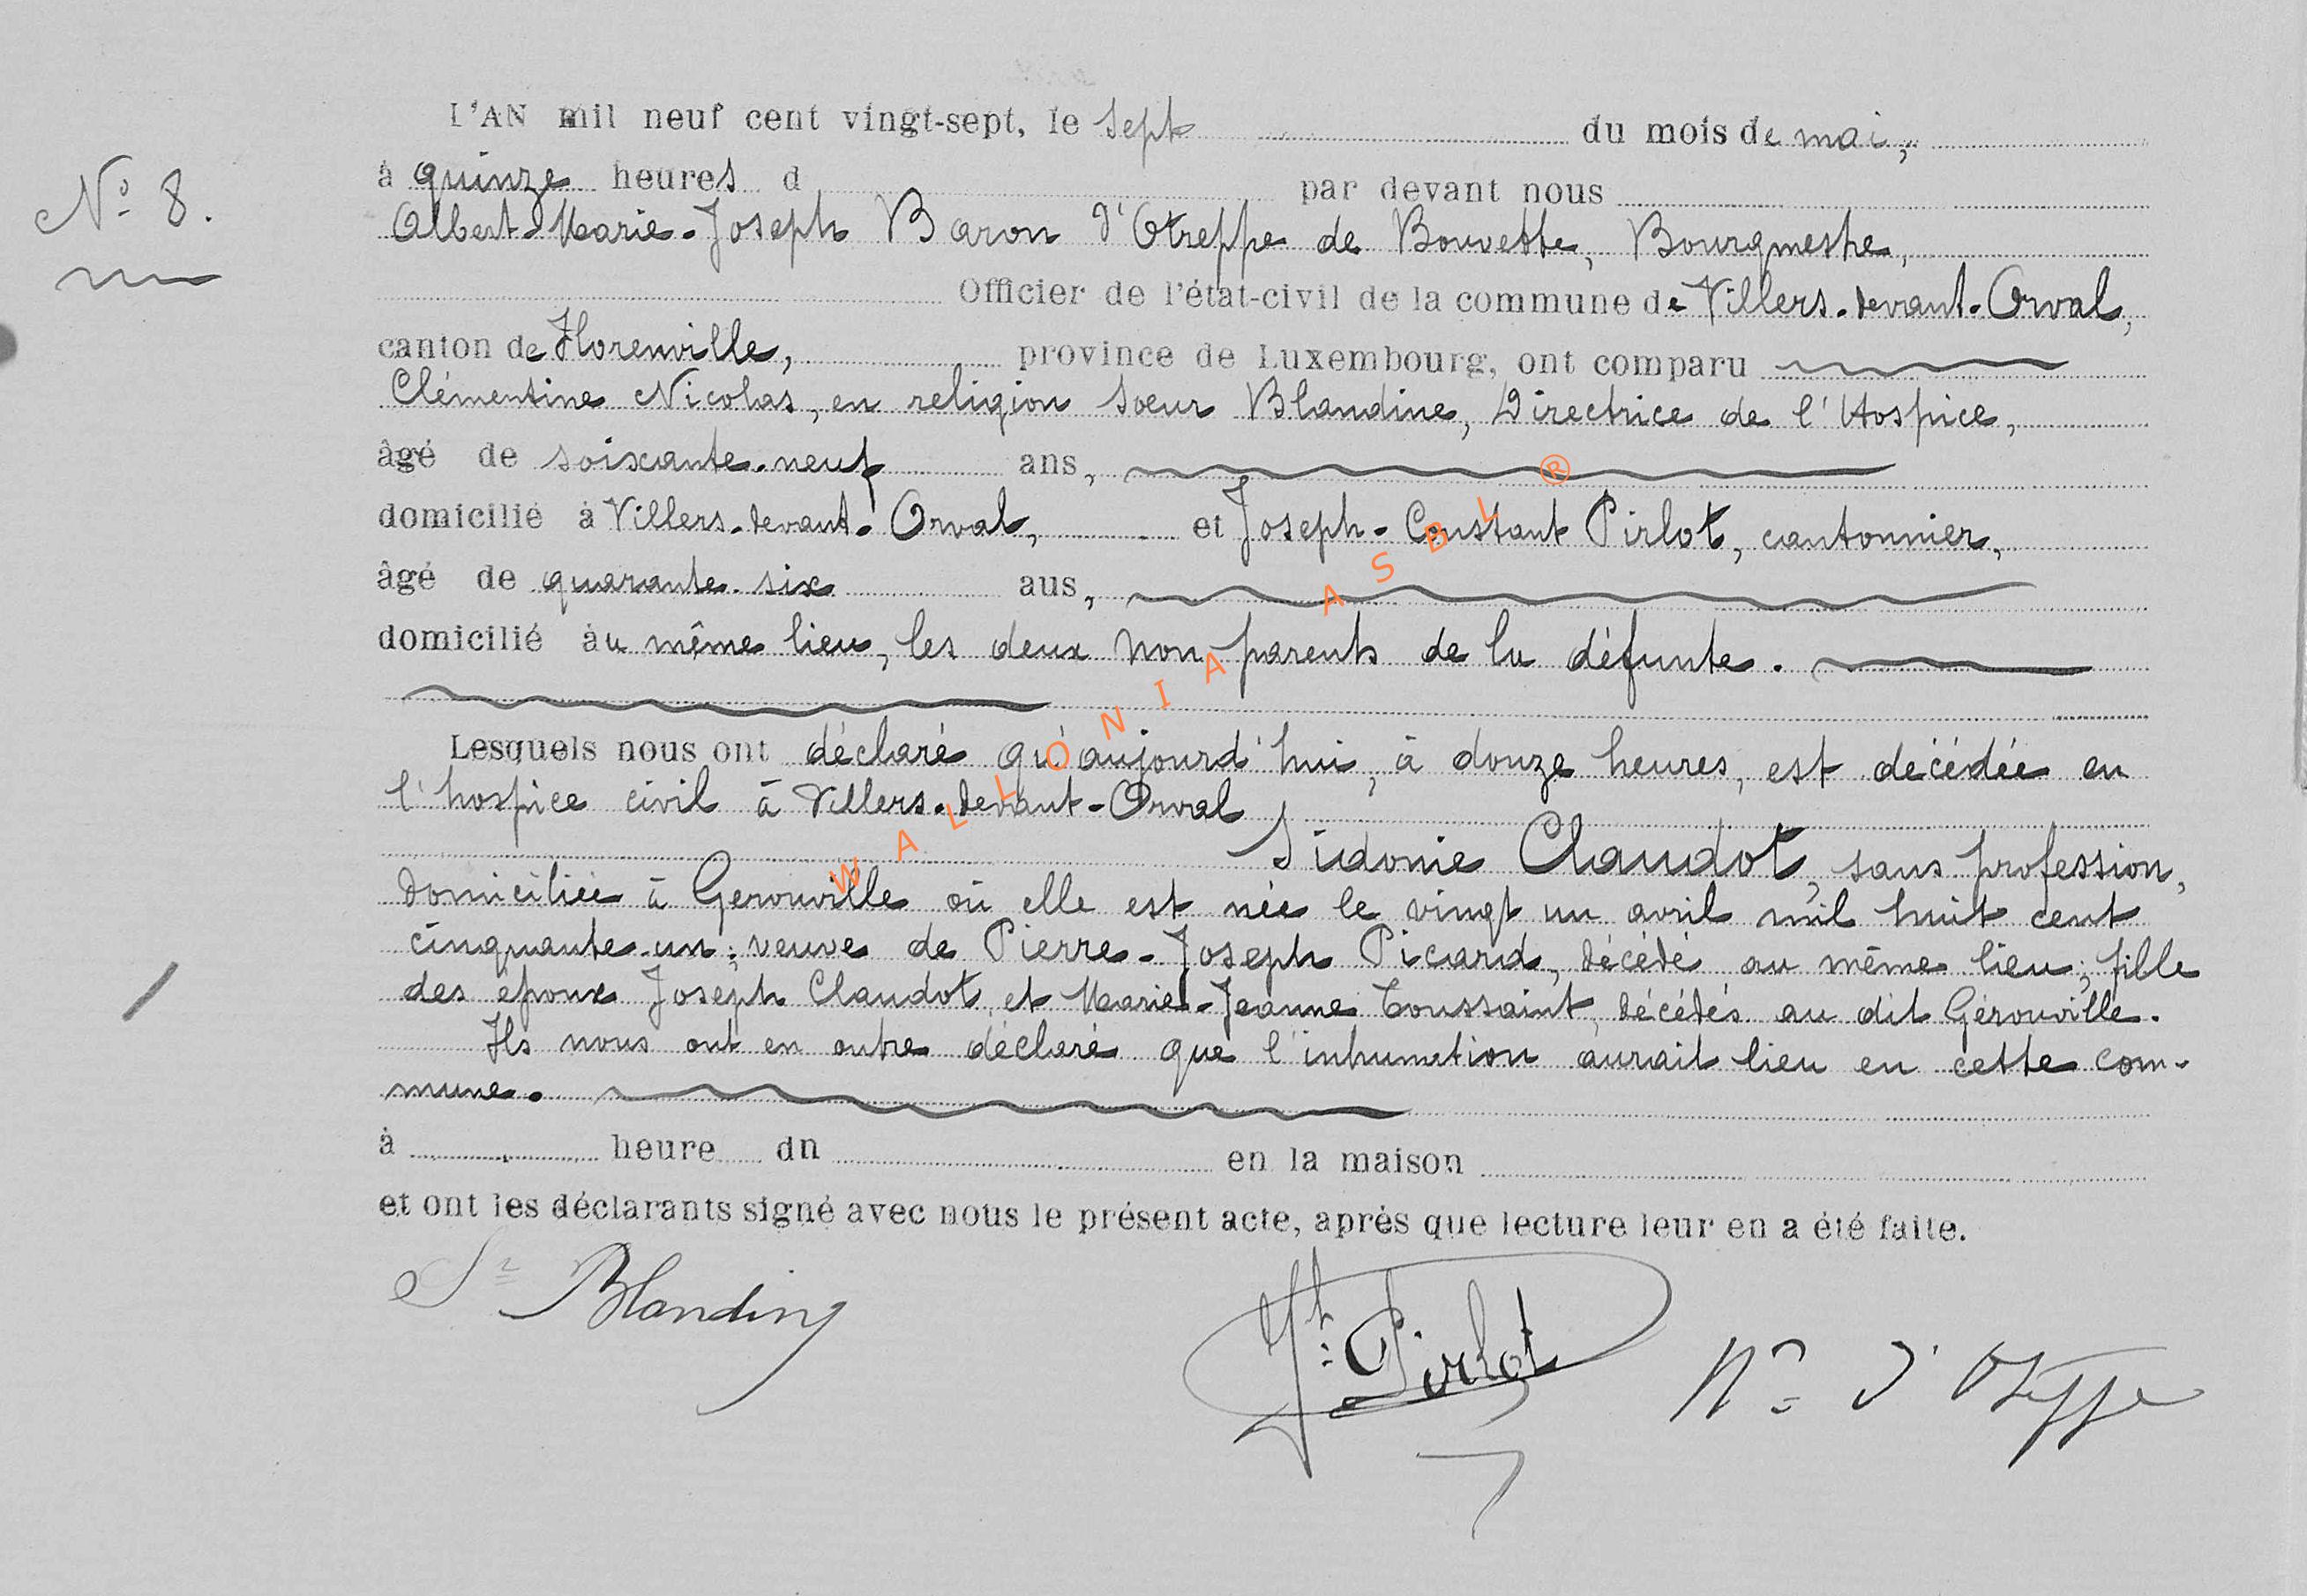 L'AN mil neuf cent vingt-sept, le sept du mois de mai,
N° 8.
à quinze heures d par devant nous
Albert-Marie-Joseph Baron d'Otreppe de Bouvette, Bourgmestre,
Officier de l'état-civil de la commune de Villers-devant-Orval,
canton de Florenville, province de Luxembourg, ont comparu
Clémentine Nicolas, en religion soeur Blandine, Directrice de l'Hospice,
âgé de soixante-neuf ans,
domicilié à Villers-devant-Orval, et Joseph-Constant Pirlot, cantonnier,
âgé de quarante-six aus,
domicilié àu même lieu, les deux non parents de la défunte.
Lesquels nous ont déclaré qu'aujourd'hui, à douze heures, est décédée en
l'hospice civil à Villers-devant-Orval
Sidonie Claudot, sans profession,
domiciliée à Gerouville où elle est née le vingt un avril mil huit cent
cinquante-un; veuve de Pierre-Joseph Picard, décédé au même lieu; fille
des époux Joseph Claudot et Marie-Jeanne Toussaint, décédés au dit Gérouville.
Ils nous ont en outre déclaré que l'inhumation aurait lieu en cette com-
mune.
à heure dn en la maison
et ont les déclarants signé avec nous le présent acte, après que lecture leur en a été faite.
Sr Blandine
Jh: Pirlot
d'Otreppe
WALLONIA ASBL ®